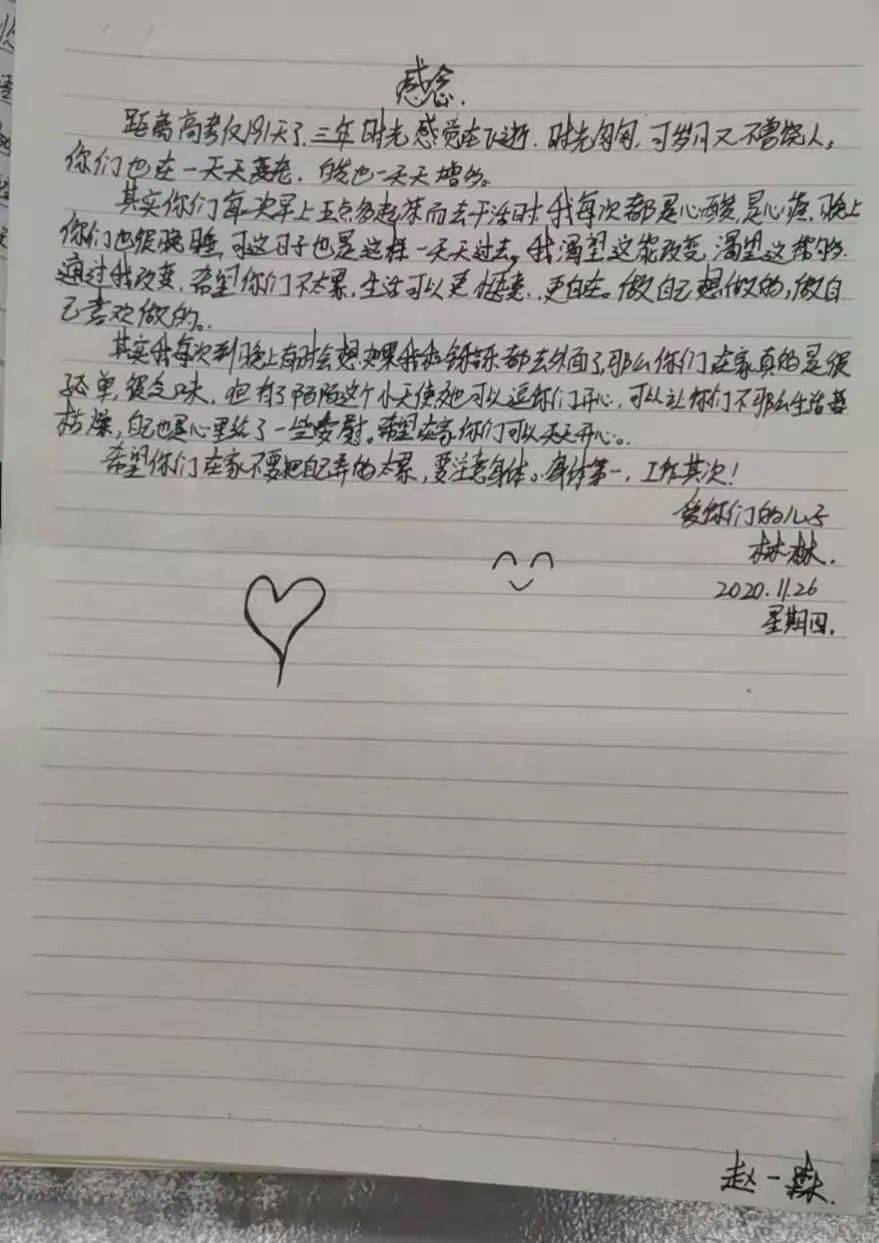 感念.
距离高考仅191天了,三年时光感觉在飞逝.时光匆匆,可岁月又不曾饶人。
你们也在一天天变老,白发也一天天增多。
其实你们每次早上五点多起床而去干活时,我每次都是心酸,是心疼,晚上
你们也很晚睡,可这日子也是这样一天天过去。我渴望这能改变,渴望这能够
通过我改变,希望你们不太累,生活可以更惬意,更自在。做自己想做的,做自
己喜欢做的。
其实我每次到晚上有时会想如果我和 都去外面了,那么你们在家真的是很
孤单,很乏味,但有了陌陌这个小天使她可以逗你们开心,可以让你们不那么生活
枯燥,自己也是心里给了一些安慰。希望在家你们可以天天开心。
希望你们在家不要把自己弄的太累,要注意身体。身体第一,工作其次!
爱你们的儿子
林林.
2020.11.26
星期四.
赵一